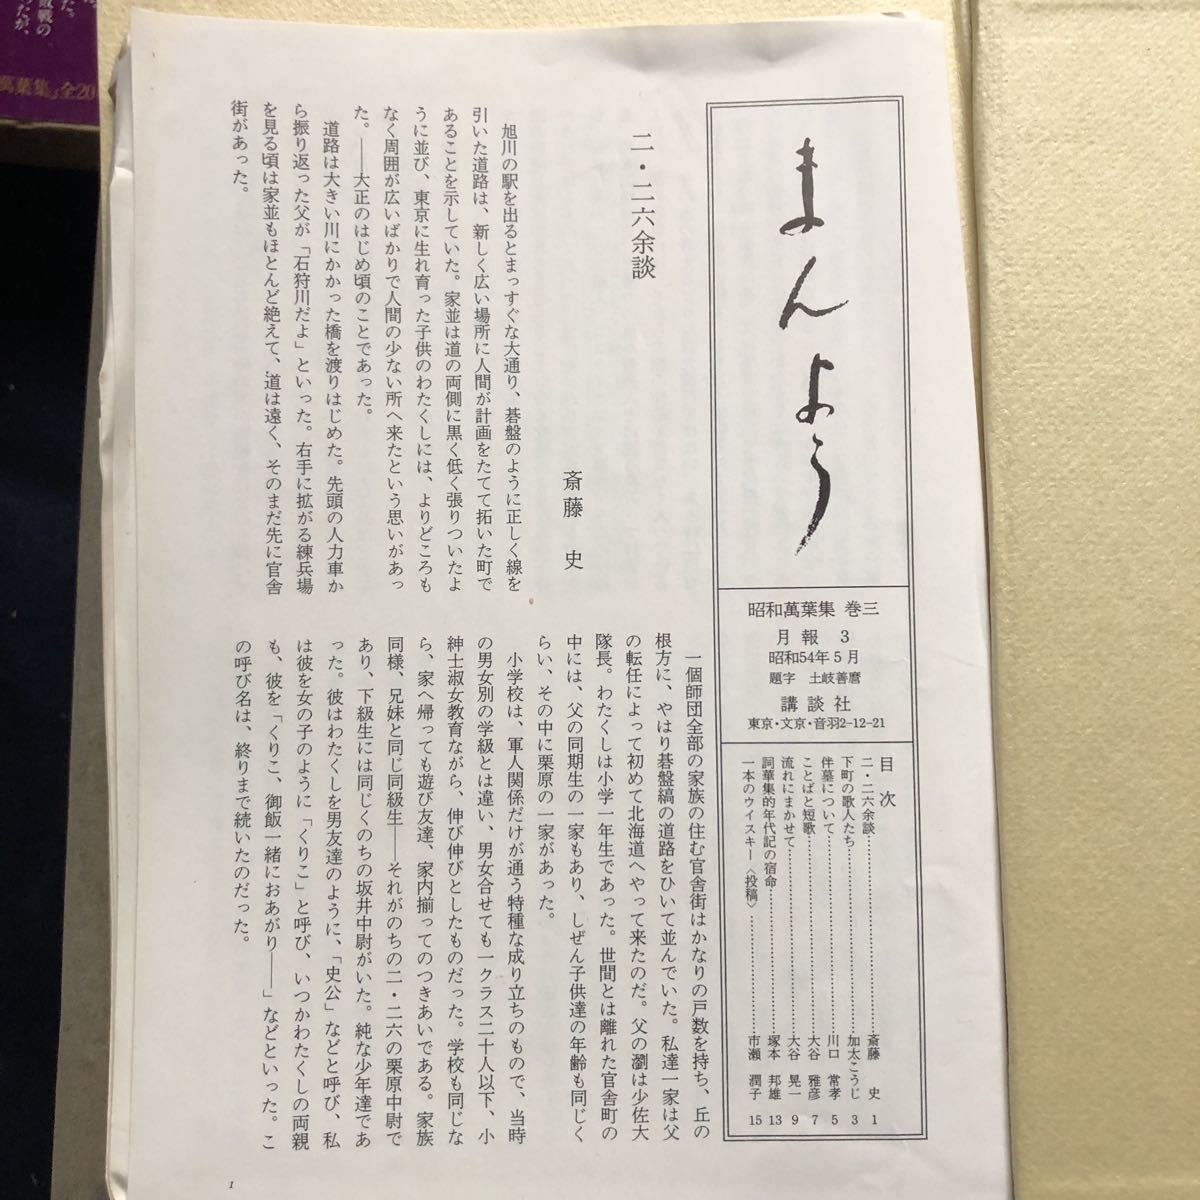 まんよう
昭和萬葉集 巻三
月報 3
昭和54年5月
題字 土岐善麿
講談社
東京・文京・音羽2-12-21
目次
二・二六余談……………斎藤 史 1
下町の歌人たち……………加太こうじ 3
伴墓について……………川口 常孝 5
ことばと短歌……………大谷 雅彦 7
流れにまかせて……………大谷 晃一 9
詞華集的年代記の宿命……………塚本 邦雄 13
一本のウイスキー〈投稿〉……………市瀬 潤子 15
二・二六余談
斎藤 史
旭川の駅を出るとまっすぐな大通り、碁盤のように正しく線を
引いた道路は、新しく広い場所に人間が計画をたてて拓いた町で
あることを示していた。家並は道の両側に黒く低く張りついたよ
うに並び、東京に生れ育った子供のわたくしには、よりどころも
なく周囲が広いばかりで人間の少ない所へ来たという思いがあっ
た。――大正のはじめ頃のことであった。
道路は大きい川にかかった橋を渡りはじめた。先頭の人力車か
ら振り返った父が「石狩川だよ」といった。右手に拡がる練兵場
を見る頃は家並もほとんど絶えて、道は遠く、そのまだ先に官舎
街があった。
一個師団全部の家族の住む官舎街はかなりの戸数を持ち、丘の
根方に、やはり碁盤縞の道路をひいて並んでいた。私達一家は父
の転任によって初めて北海道へやって来たのだ。父の瀏は少佐大
隊長。わたくしは小学一年生であった。世間とは離れた官舎町の
中には、父の同期生の一家もあり、しぜん子供達の年齢も同じく
らい、その中に栗原の一家があった。
小学校は、軍人関係だけが通う特種な成り立ちのもので、当時
の男女別の学級とは違い、男女合せても一クラス二十人以下、小
紳士淑女教育ながら、伸び伸びとしたものだった。学校も同じな
ら、家へ帰っても遊び友達、家内揃ってのつきあいである。家族
同様、兄妹と同じ同級生――それがのちの二・二六の栗原中尉で
あり、下級生には同じくのちの坂井中尉がいた。純な少年達であ
った。彼はわたくしを男友達のように、「史公」などと呼び、私
は彼を女の子のように「くりこ」と呼び、いつかわたくしの両親
も、彼を「くりこ、御飯一緒におあがり――」などといった。こ
の呼び名は、終りまで続いたのだった。
1
萬葉集』全20
敗戦の
だが、